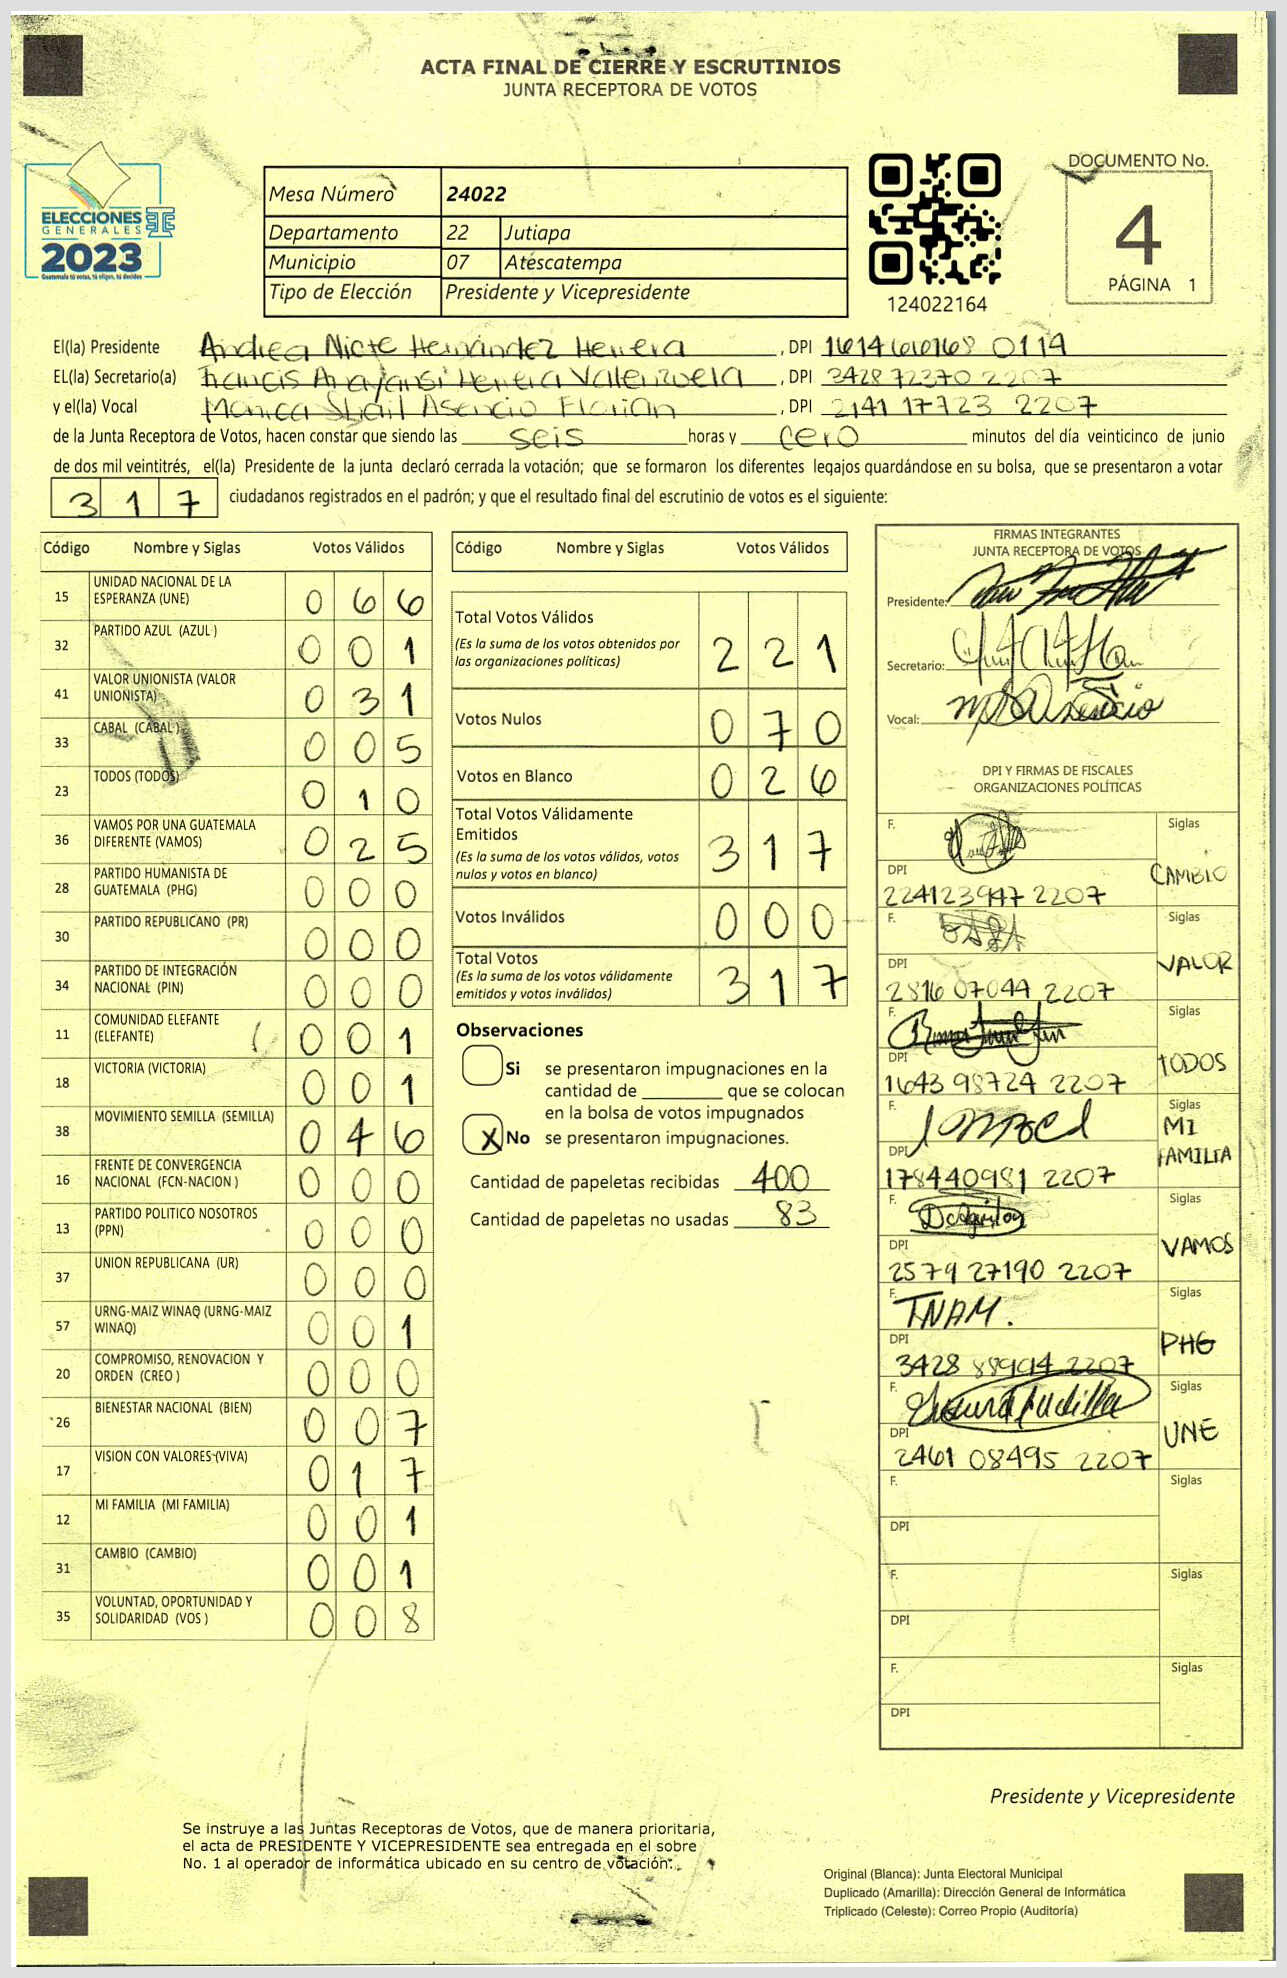 ACTA FINAL DE CIERRE Y ESCRUTINIOS
JUNTA RECEPTORA DE VOTOS
ELECCIONES
GENERALES
2023
Guatemala tú votas, tú eliges, tú decides
Mesa Número 24022
Departamento 22 Jutiapa
Municipio 07 Atescatempa
Tipo de Elección Presidente y Vicepresidente
124022164
DOCUMENTO No.
4
PÁGINA 1
El(la) Presidente Andrea Hernández Herrera , DPI 0114
EL(la) Secretario(a) Francis Anayansi Herrera Valenzuela , DPI 3428 72370 2207
y el(la) Vocal Monica Asencio Florian , DPI 2141 17723 2207
de la Junta Receptora de Votos, hacen constar que siendo las seis horas y cero minutos del día veinticinco de junio
de dos mil veintitrés, el(la) Presidente de la junta declaró cerrada la votación; que se formaron los diferentes legajos guardándose en su bolsa, que se presentaron a votar
317 ciudadanos registrados en el padrón; y que el resultado final del escrutinio de votos es el siguiente:
Código Nombre y Siglas Votos Válidos
15 UNIDAD NACIONAL DE LA ESPERANZA (UNE) 066
32 PARTIDO AZUL (AZUL ) 001
41 VALOR UNIONISTA (VALOR UNIONISTA) 031
33 CABAL (CABAL ) 005
23 TODOS (TODOS) 010
36 VAMOS POR UNA GUATEMALA DIFERENTE (VAMOS) 025
28 PARTIDO HUMANISTA DE GUATEMALA (PHG) 000
30 PARTIDO REPUBLICANO (PR) 000
34 PARTIDO DE INTEGRACIÓN NACIONAL (PIN) 000
11 COMUNIDAD ELEFANTE (ELEFANTE) 001
18 VICTORIA (VICTORIA) 001
38 MOVIMIENTO SEMILLA (SEMILLA) 046
16 FRENTE DE CONVERGENCIA NACIONAL (FCN-NACION ) 000
13 PARTIDO POLITICO NOSOTROS (PPN) 000
37 UNION REPUBLICANA (UR) 000
57 URNG-MAIZ WINAQ (URNG-MAIZ WINAQ) 001
20 COMPROMISO, RENOVACION Y ORDEN (CREO ) 000
26 BIENESTAR NACIONAL (BIEN) 007
17 VISION CON VALORES (VIVA) 017
12 MI FAMILIA (MI FAMILIA) 001
31 CAMBIO (CAMBIO) 001
35 VOLUNTAD, OPORTUNIDAD Y SOLIDARIDAD (VOS ) 008
Código Nombre y Siglas Votos Válidos
Total Votos Válidos 221
(Es la suma de los votos obtenidos por
las organizaciones políticas)
Votos Nulos 070
Votos en Blanco 026
Total Votos Válidamente
Emitidos 317
(Es la suma de los votos válidos, votos
nulos y votos en blanco)
Votos Inválidos 000
Total Votos 317
(Es la suma de los votos válidamente
emitidos y votos inválidos)
Observaciones
Si se presentaron impugnaciones en la
cantidad de ________ que se colocan
en la bolsa de votos impugnados
X No se presentaron impugnaciones.
Cantidad de papeletas recibidas 400
Cantidad de papeletas no usadas 83
FIRMAS INTEGRANTES
JUNTA RECEPTORA DE VOTOS
Presidente:
Secretario:
Vocal:
DPI Y FIRMAS DE FISCALES
ORGANIZACIONES POLÍTICAS
F. Siglas
CAMBIO
DPI
224123947 2207
F. Siglas
VALOR
DPI
2816 07044 2207
F. Siglas
TODOS
DPI
1643 98724 2207
F. Siglas
MI
FAMILIA
DPI
178440981 2207
F. Siglas
VAMOS
DPI
2579 27190 2207
F. TNAM. Siglas
PHG
DPI
3428 2207
F. Siglas
UNE
DPI
2461 08495 2207
F. Siglas
DPI
F. Siglas
DPI
F. Siglas
DPI
Presidente y Vicepresidente
Se instruye a las Juntas Receptoras de Votos, que de manera prioritaria,
el acta de PRESIDENTE Y VICEPRESIDENTE sea entregada en el sobre
No. 1 al operador de informática ubicado en su centro de votación.
Original (Blanca): Junta Electoral Municipal
Duplicado (Amarilla): Dirección General de Informática
Triplicado (Celeste): Correo Propio (Auditoría)